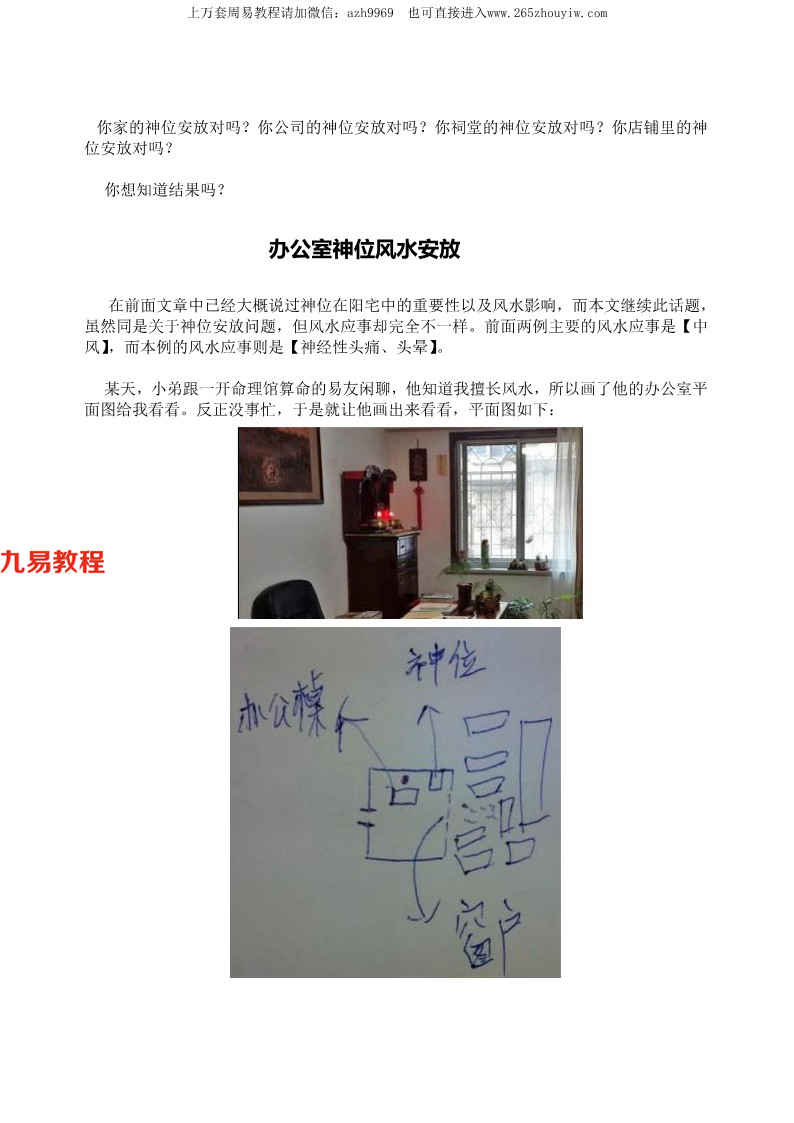 上万套周易教程请加微信：azh9969 也可直接进入www.265zhouyiw.com
你家的神位安放对吗？你公司的神位安放对吗？你祠堂的神位安放对吗？你店铺里的神
位安放对吗？
你想知道结果吗？
办公室神位风水安放
在前面文章中已经大概说过神位在阳宅中的重要性以及风水影响，而本文继续此话题，
虽然同是关于神位安放问题，但风水应事却完全不一样。前面两例主要的风水应事是【中
风】，而本例的风水应事则是【神经性头痛、头晕】。
某天，小弟跟一开命理馆算命的易友闲聊，他知道我擅长风水，所以画了他的办公室平
面图给我看看。反正没事忙，于是就让他画出来看看，平面图如下：
九易教程
神位
办公桌
窗户